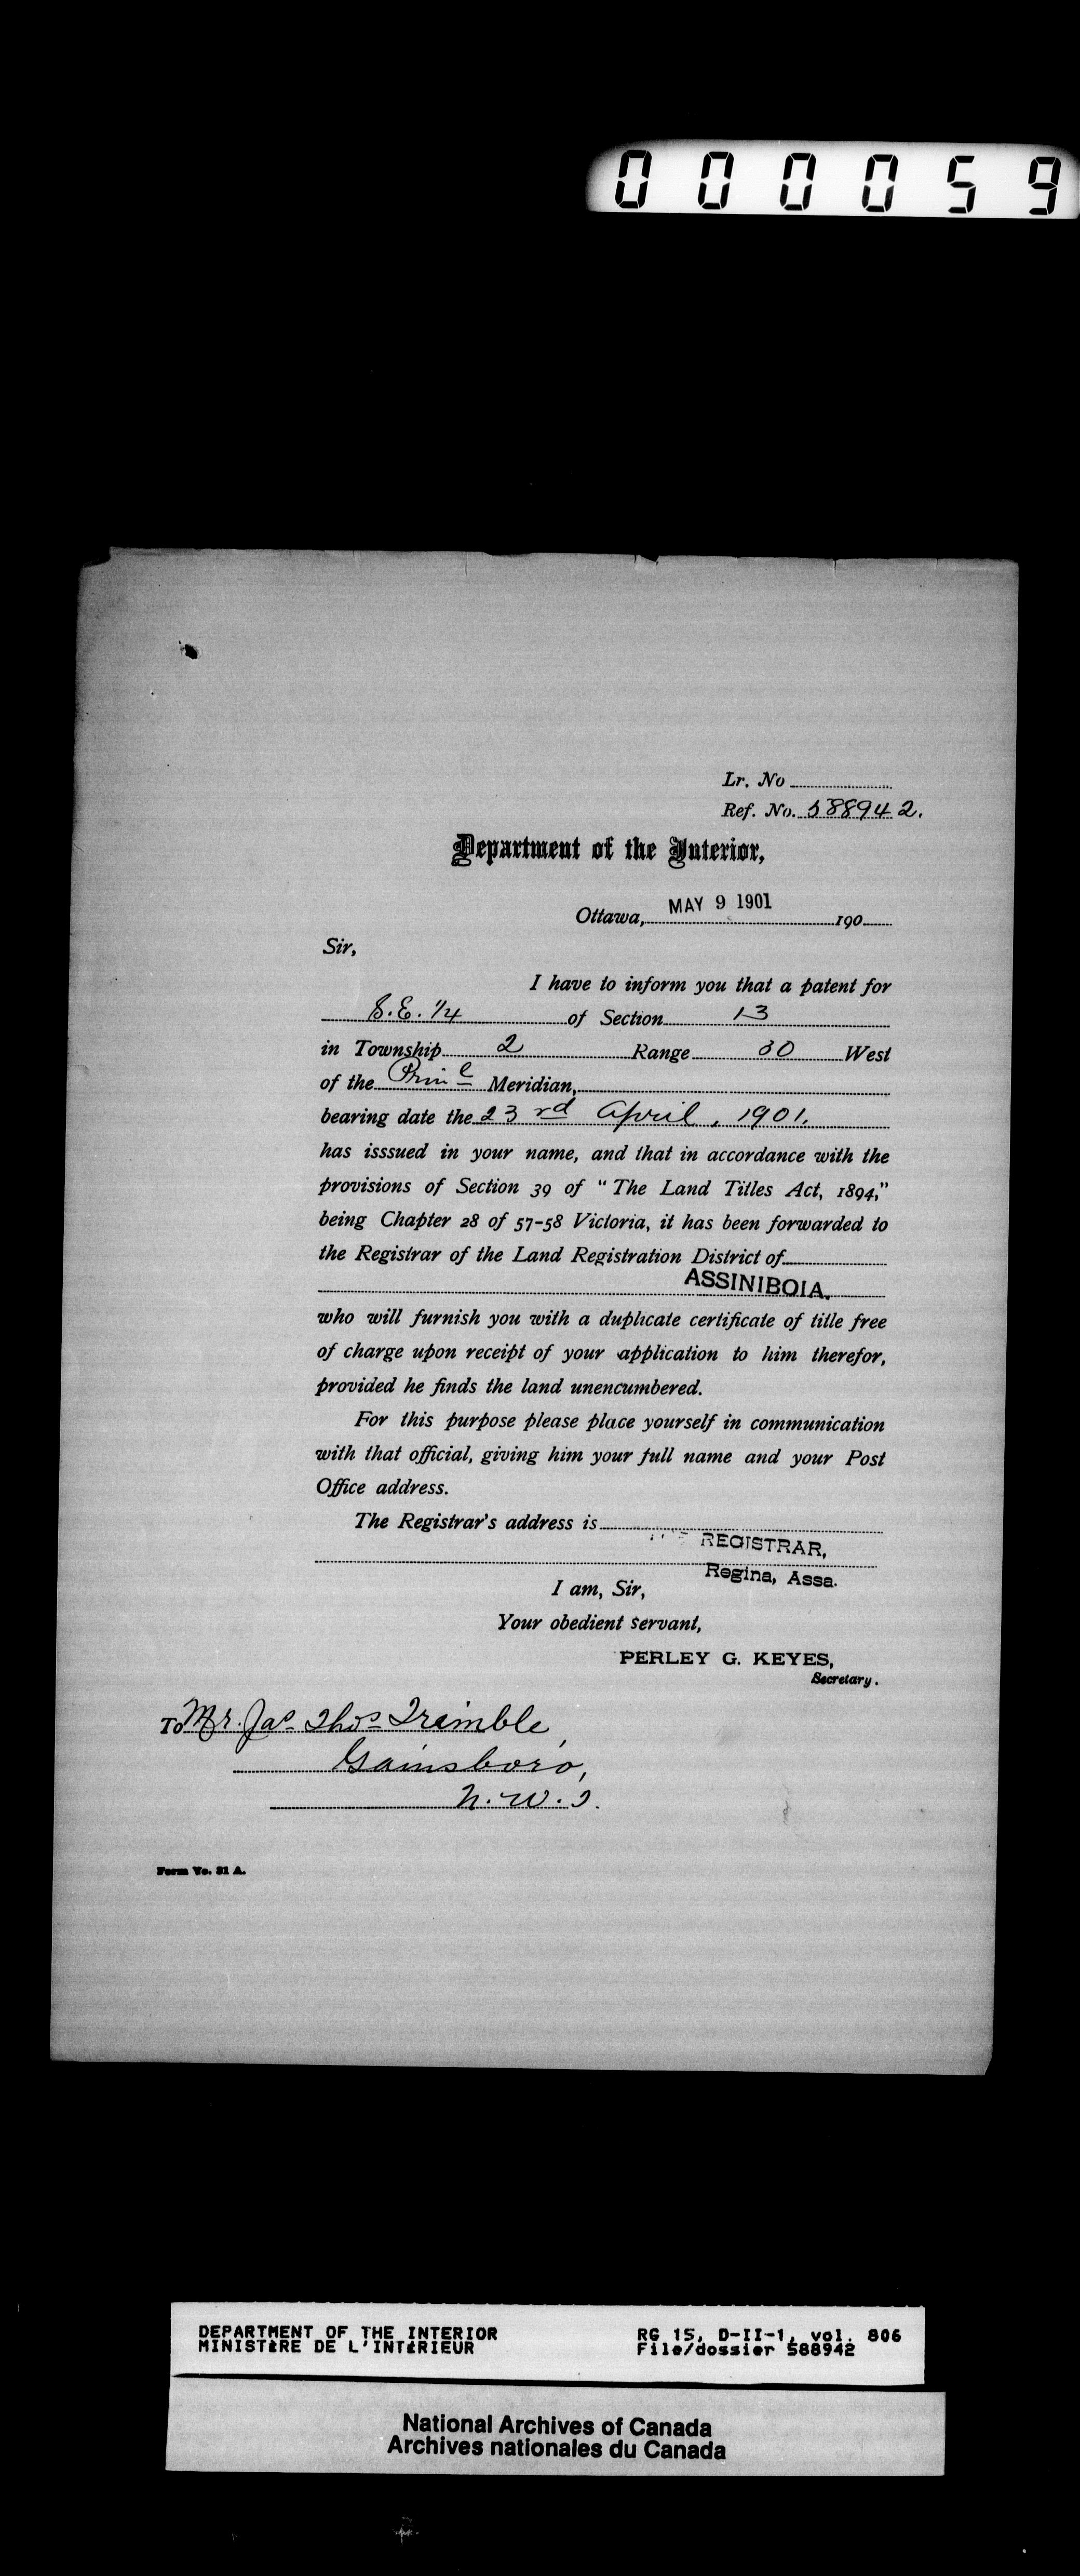 000059
Lr. No
Ref. No. 588942.
Department of the Interior,
Ottawa, MAY 9 1901 190
Sir,
I have to inform you that a patent for
S.E. 1/4 of Section 13
in Township 2 Range 30 West
of the Prinl Meridian,
bearing date the 23rd April, 1901.
has isssued in your name, and that in accordance with the
provisions of Section 39 of "The Land Titles Act, 1894,"
being Chapter 28 of 57-58 Victoria, it has been forwarded to
the Registrar of the Land Registration District of
ASSINIBOIA.
who will furnish you with a duplicate certificate of title free
of charge upon receipt of your application to him therefor,
provided he finds the land unencumbered.
For this purpose please place yourself in communication
with that official, giving him your full name and your Post
Office address.
The Registrar's address is
REGISTRAR,
Regina, Assa.
I am, Sir,
Your obedient servant,
PERLEY G. KEYES,
Secretary.
To Mr. Jas Thos Trimble,
Gainsboro,
N.W.T.
Form No. 31 A.
DEPARTMENT OF THE INTERIOR RG 15, D-II-1, vol. 806
MINISTÈRE DE L'INTÉRIEUR File/dossier 588942
National Archives of Canada
Archives nationales du Canada